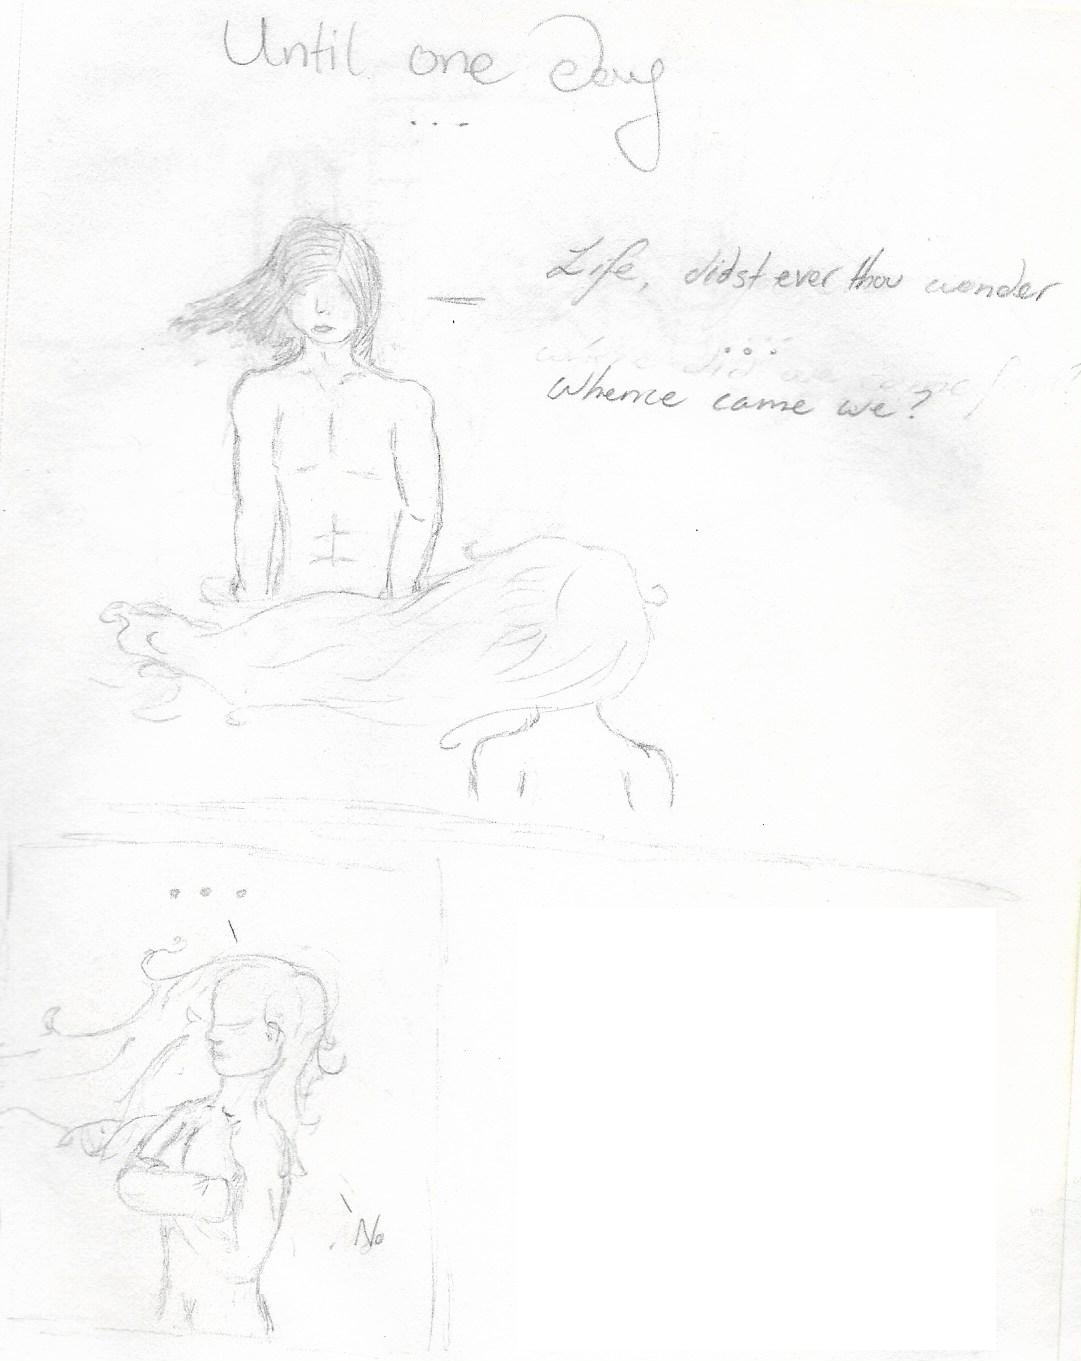 Until one Day
...
Life, didst ever thou wonder
...
Whence came we?
...
No